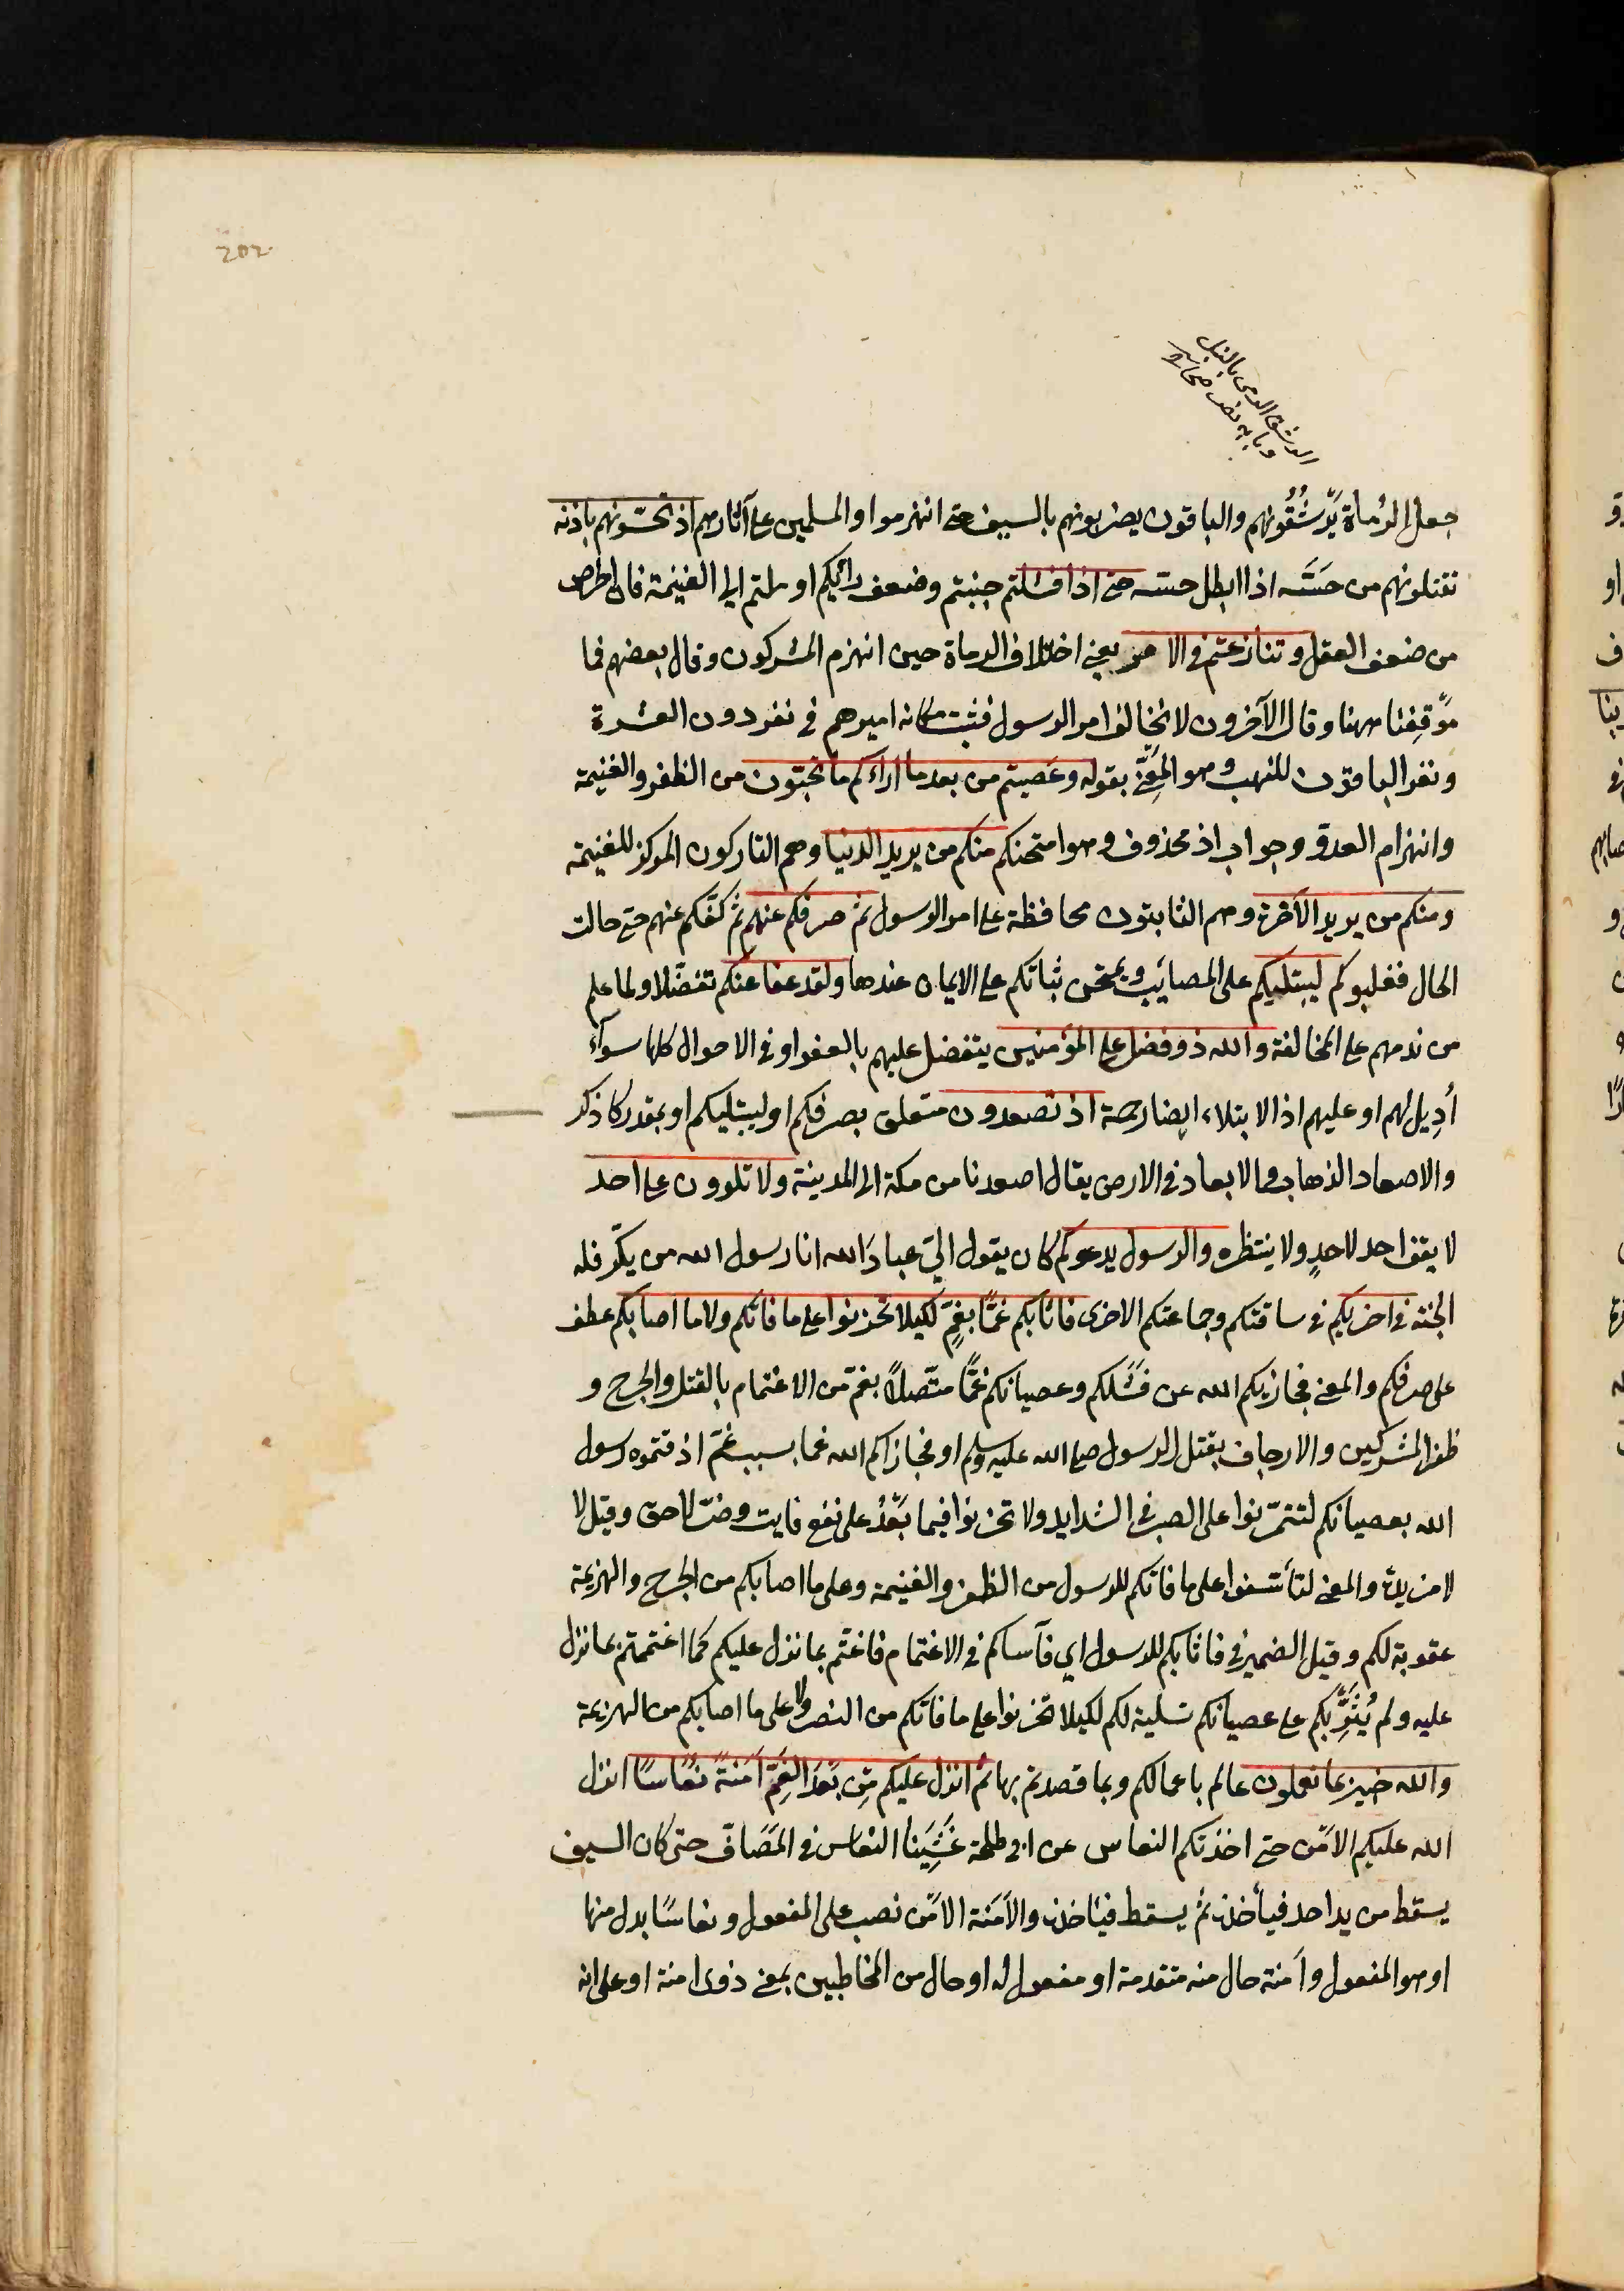 202
الرشق الرمى بالنبل
وبابه نصر صحاح
جعل الرُماة يَرْشُقُونهم والباقون يضربونهم بالسيف حتى انهزموا والمسلمين على آثارهم اذ تحسّونهم باذنه
تقتلونهم من حَسَّه اذا ابطل حسّه حتى اذا فشلتم جبنتم وضعف رائيكم او ملتم الى الغنيمة فان الحرص
من ضعف العقل وتنازعتم فى الامر يعنى اختلاف الرماة حين انهزم المشركون وقال بعضهم فما
مَوقِفنا ههنا وقال الآخرون لا نخالف امر الرسول فثبت مكانه اميرهم فى نفر دون العشرة
ونفر الباقون للنهب وهو المَعنِىّ بقوله وعصيتم من بعد ما اراكم ما تحبّون من الظفر والغنيمة
وانهزام العدوّ وجواب اذ محذوف وهو امتحنكم منكم من يريد الدنيا وهم التاركون المركز للغنيمة
ومنكم من يريد الآخرة وهم الثابتون محافظة على امر الرسول ثم صرفكم عنهم ثمّ كفّكم عنهم حتى حالت
الحال فغلبوكم ليبتليكم على المصائب ويمتحن ثباتكم على الايمان عندها ولقد عفا عنكم تفضّلا ولما علم
من ندمهم على المخالفة والله ذو فضل على المؤمنين يتفضل عليهم بالعفو او فى الاحوال كلها سواء
أُدِيل لهم او عليهم اذ الابتلاء ايضا رحمة اذ تصعدون متعلق بصرفكم او ليبتليكم او بمقدر كاذكر
والاصعاد الذهاب والابعاد فى الارض يقال اصعدنا من مكة الى المدينة ولا تلوون على احد
لا يقف احد لاحدٍ ولا ينتظره والرسول يدعوكم كان يقول الىّ عبادَ الله انا رسول الله من يكرّ فله
الجنة فى اخريكم فى ساقتكم وجماعتكم الاخرى فاثابكم غمًّا بغمٍّ لكيلا تحزنوا على ما فاتكم ولا ما اصابكم عطف
على صرفكم والمعنى فجازيكم الله عن فشلكم وعصيانكم غمًّا متّصلًا بغمّ من الاغتمام بالقتل والجرح و
ظفر المشركين والارجاف بقتل الرسول صلى الله عليه وسلم او فجازاكم الله غما بسبب غمّ اذقتموه رسول
الله بعصيانكم لتتمرّنوا على الصبر فى الشدايد ولا تحزنوا فيما بَعْدُ على نفع فايت وضرّ لاحق وقيل لا
لا مزيدة والمعنى لتأسّفوا على ما فاتكم للرسول من الظفر والغنيمة وعلى ما اصابكم من الجرح والهزيمة
عقوبة لكم وقيل الضمير فى فاثابكم للرسول اى فآساكم فى الاغتمام فاغتمّ بما نزل عليكم كما اغتممتم بما نزل
عليه ولم يُثَرِّبكم على عصيانكم تسلية لكم لكيلا تحزنوا على ما فاتكم من النصر ولا على ما اصابكم من الهزيمة
والله خبير بما تعملون عالم باعمالكم وبما قصدتم بها ثمّ انزل عليكم مِن بَعْدِ الغَمّ اَمَنَةً نعاسًا انزل
الله عليكم الامْن حتى اخذتكم النعاس عن ابى طلحة غَشِيَنا النعاس فى المَصَافّ حتى كان السيف
يسقط من يد احد فيأخذه ثمّ يسقط فيأخذه والاَمَنَة الامْن نصب على المفعول ونعاسًا بدل منها
او هو المفعول وآمنة حال منه متقدمة او مفعول له او حال من المخاطبين بمعنى ذوى امنة او على انه